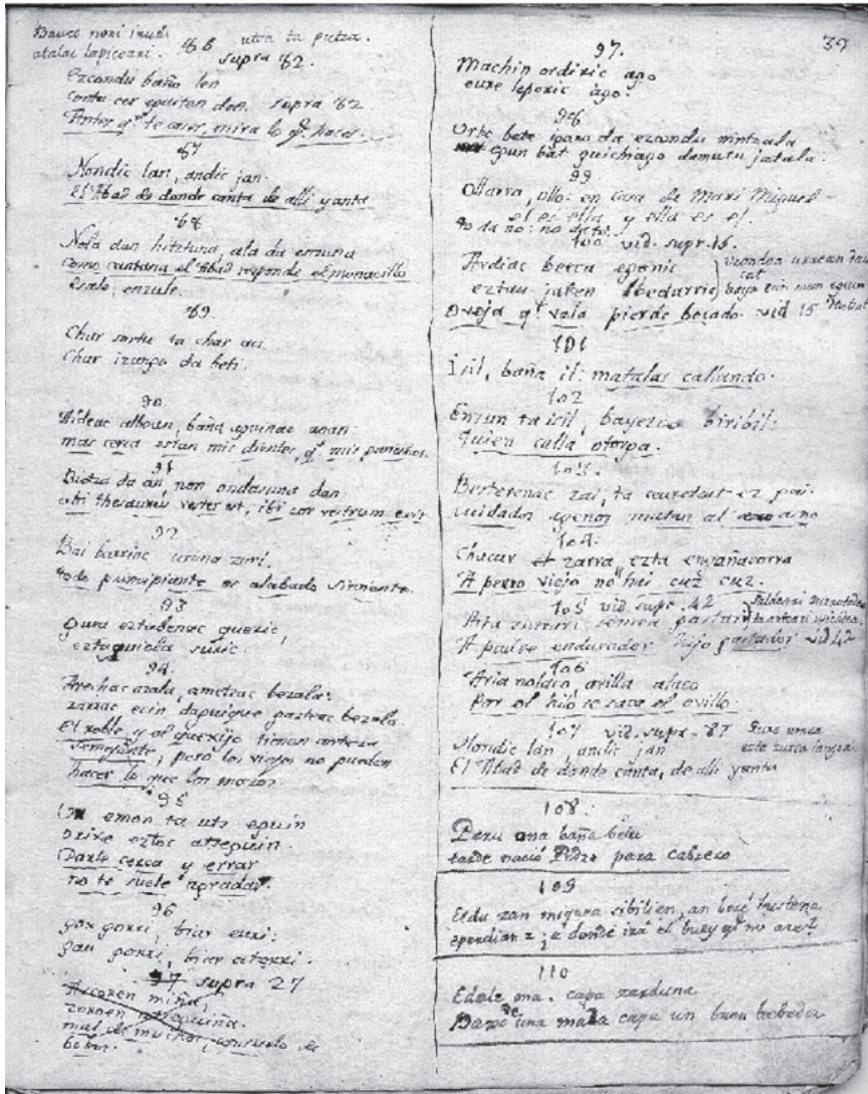 Bauco nori
atalai lapicorri. 86 utra ta putza.
supra 82.
Ezcondu baño len
contu cer eguiten den. supra 82
Antes q.e te cases, mira lo q.e haces
87
Nondic lan, andic jan.
El Abad de donde canta de alli yanta
88
Nola dan hitztuna, ala da enzuna
como cantana el Abad responde el monacillo
Esale, enzule.
89.
Char sartu ta char
Char izango da beti.
90
Aideac alboan, baña aguinac
mas cerca estan mis dientes, q.e mis parientes.
91
Biotza da an, non ondasuna dan
ubi thesaurus vester est, ibi cor vestrum erit
92
Bai barriac uruna zuri.
todo principiante es alabado
93
Gura eztabenac queric,
eztaguiela suric.
94.
Arechac azala, ametzac bezala:
zarrac ecin daguigue gazteac bezala.
El roble y el quexijo tienen corteza
semejante, pero los viejos no pueden
hacer lo que los mozos.
95
emon ta uts eguin
orixe eztoc atseguin.
Darle cerca y errar
no te suele agradar.
96
gox gorri, biar euri:
gau gorri, biar eguzqui.
97 supra 27
Ascoren miña,
zoroen atseguiña.
mal de muchos, consuelo de
bobos.
39
97.
Machin ordiric ago
eure leporic ago.
98
Urte bete igaro da ezcondu nintzala
egun bat guichiago damutu jatala.
99
Ollarra, ollo: en casa de Mari Miguel
el es ella y ella es el.
100 vid. supr. 15.
Ardiac beeca eginic
eztau jaten bedarric
Oveja q.e vala pierde bocado. vid 15
101
Isil, baña il: matalas callando.
102
Enzun ta isil, bayezco biribil
Quien calla otorga.
103.
Besterenac zai, ta ceuretat ez gai.
cuidados agenos matan al asno
104.
Chacur zarra ezta engañacorra
A perro viejo no hei cuz cuz.
105 vid supr. 42
Aita zurrari semea gastari
A padre endurador hijo gastador vid 42
106
Aria nolaco, arilla alaco
Por el hilo se saca el ovillo.
107 vid. supr. 87
Nondic lan andic jan
El Abad de donde canta, de alli yanta
108.
Peru ona baña belu
tarde nació Pedro para cabrero
109
Erdu zan an bere
á donde irá el buey q.e no are?
110
Edale ona. capa zarduna
Baxo de una mala capa un buen bebedor